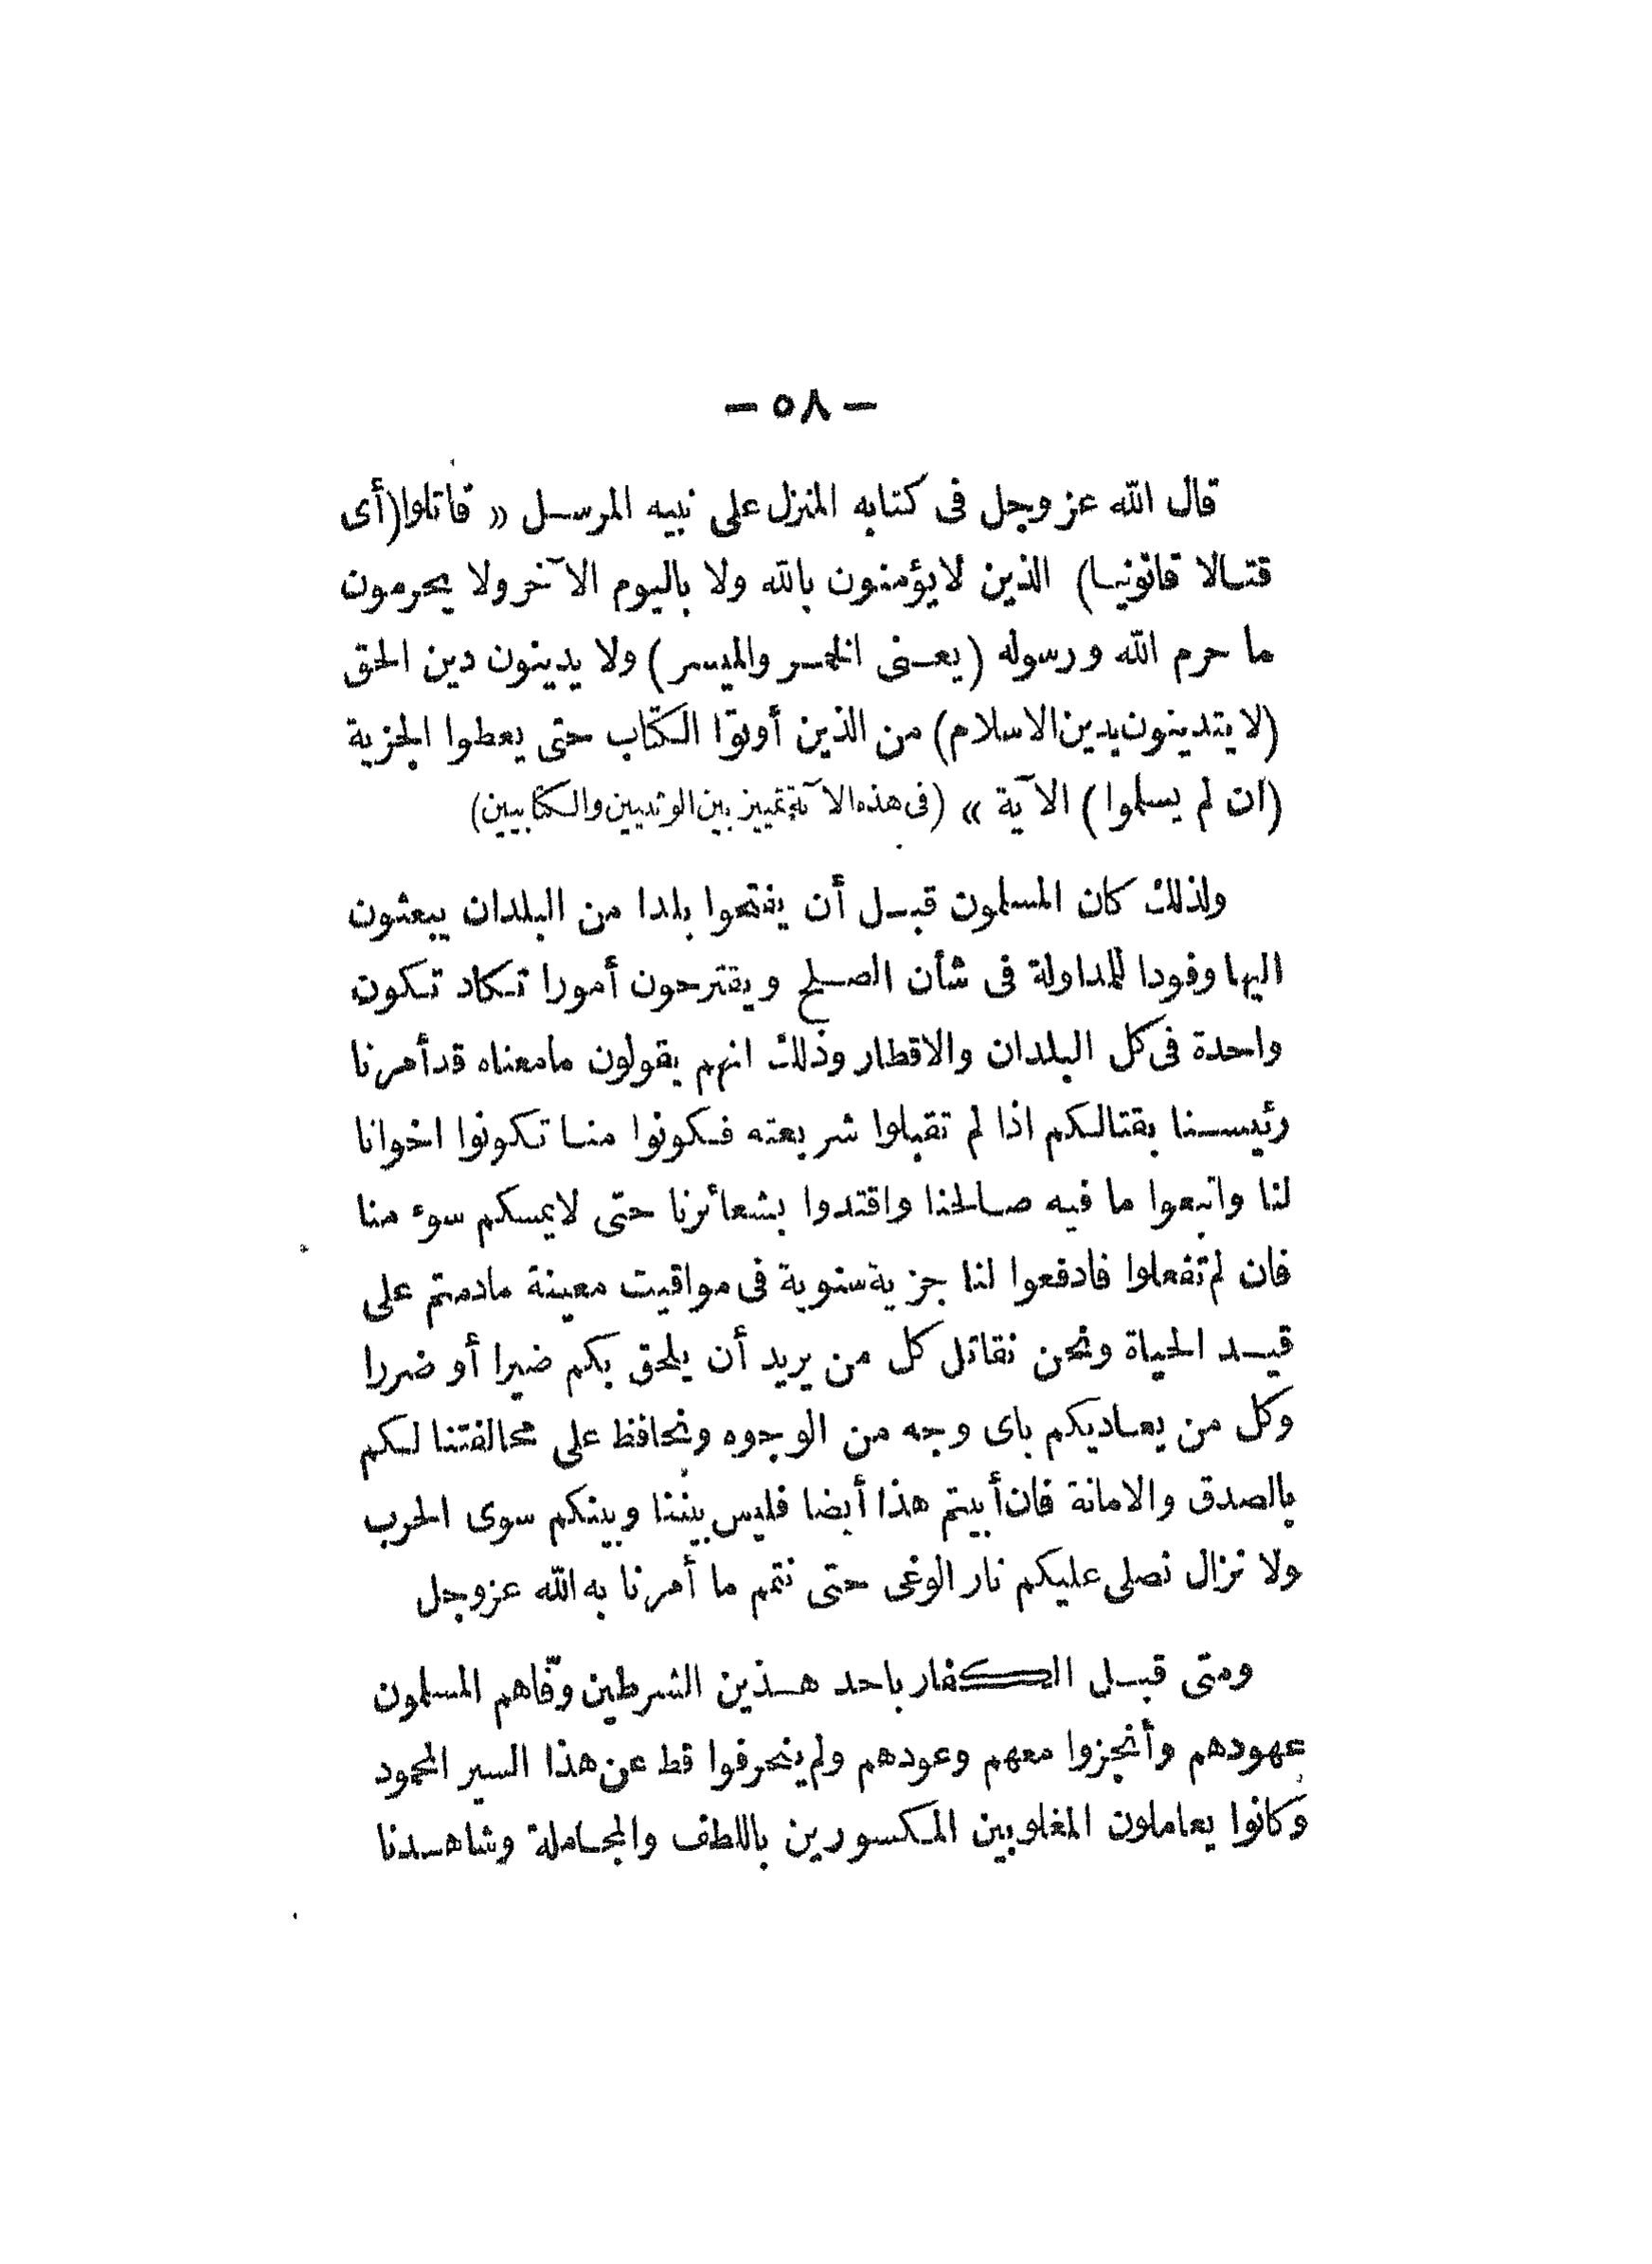 — ٥٨ —
قال الله عز وجل فى كتابه المنزل على نبيه المرسل « قاتلوا (أى
قتالا قانونيا) الذين لا يؤمنون بالله ولا باليوم الآخر ولا يحرمون
ما حرم الله ورسوله (يعنى الخمر والميسر) ولا يدينون دين الحق
(لا يتدينون بدين الاسلام) من الذين أوتوا الكتاب حتى يعطوا الجزية
(ان لم يسلموا) الآية » (فى هذه الآية تمييز بين الوثنيين والكتابيين)
ولذلك كان المسلمون قبل أن يفتحوا بلدا من البلدان يبعثون
اليها وفودا للمداولة فى شأن الصلح ويقترحون أمورا تكاد تكون
واحدة فى كل البلدان والاقطار وذلك انهم يقولون مامعناه قد أمرنا
رئيسنا بقتالكم اذا لم تقبلوا شريعته فكونوا منا تكونوا اخوانا
لنا واتبعوا ما فيه صالحنا واقتدوا بشعائرنا حتى لايمسكم سوء منا
فان لم تفعلوا فادفعوا لنا جزية سنوية فى مواقيت معينة مادمتم على
قيد الحياة ونحن نقاتل كل من يريد أن يلحق بكم ضيرا أو ضررا
وكل من يعاديكم باى وجه من الوجوه ونحافظ على محالفتنا لكم
بالصدق والامانة فان أبيتم هذا أيضا فليس بيننا وبينكم سوى الحرب
ولا نزال نصلى عليكم نار الوغى حتى نتمم ما أمرنا به الله عز وجل
ومتى قبل الكفار باحد هذين الشرطين وفّاهم المسلمون
عهودهم وأنجزوا معهم وعودهم ولم ينحرفوا قط عن هذا السير المحمود
وكانوا يعاملون المغلوبين المكسورين باللطف والمجاملة وشاهدنا